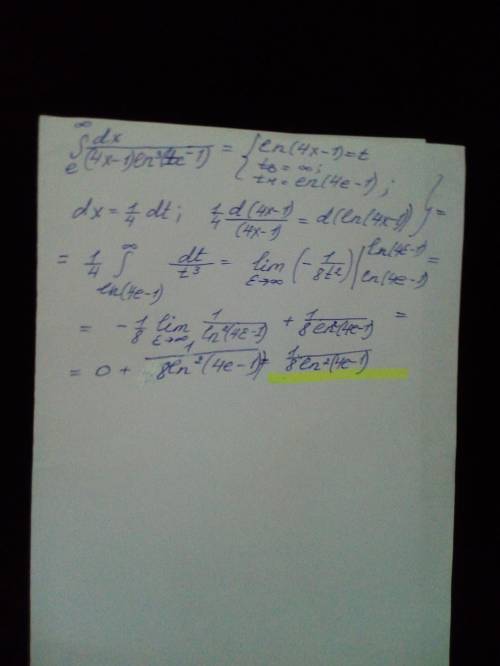 ∫_e^∞ dx/((4x-1)ln³(4x-1)) = { ln(4x-1)=t
t_в = ∞;
t_н = ln(4e-1);
dx = 1/4 dt; 1/4 d(4x-1)/(4x-1) = d(ln(4x-1)) } =
= 1/4 ∫_{ln(4e-1)}^∞ dt/t³ = lim_{ε→∞} (-1/(8t²)) |_{ln(4e-1)}^{ln(4ε-1)} =
= -1/8 lim_{ε→∞} 1/ln²(4ε-1) + 1/(8ln²(4e-1)) =
= 0 + 1/(8ln²(4e-1)) = 1/(8ln²(4e-1))